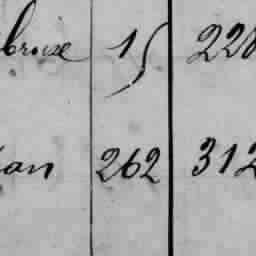 broise 15 228
ean 262 312